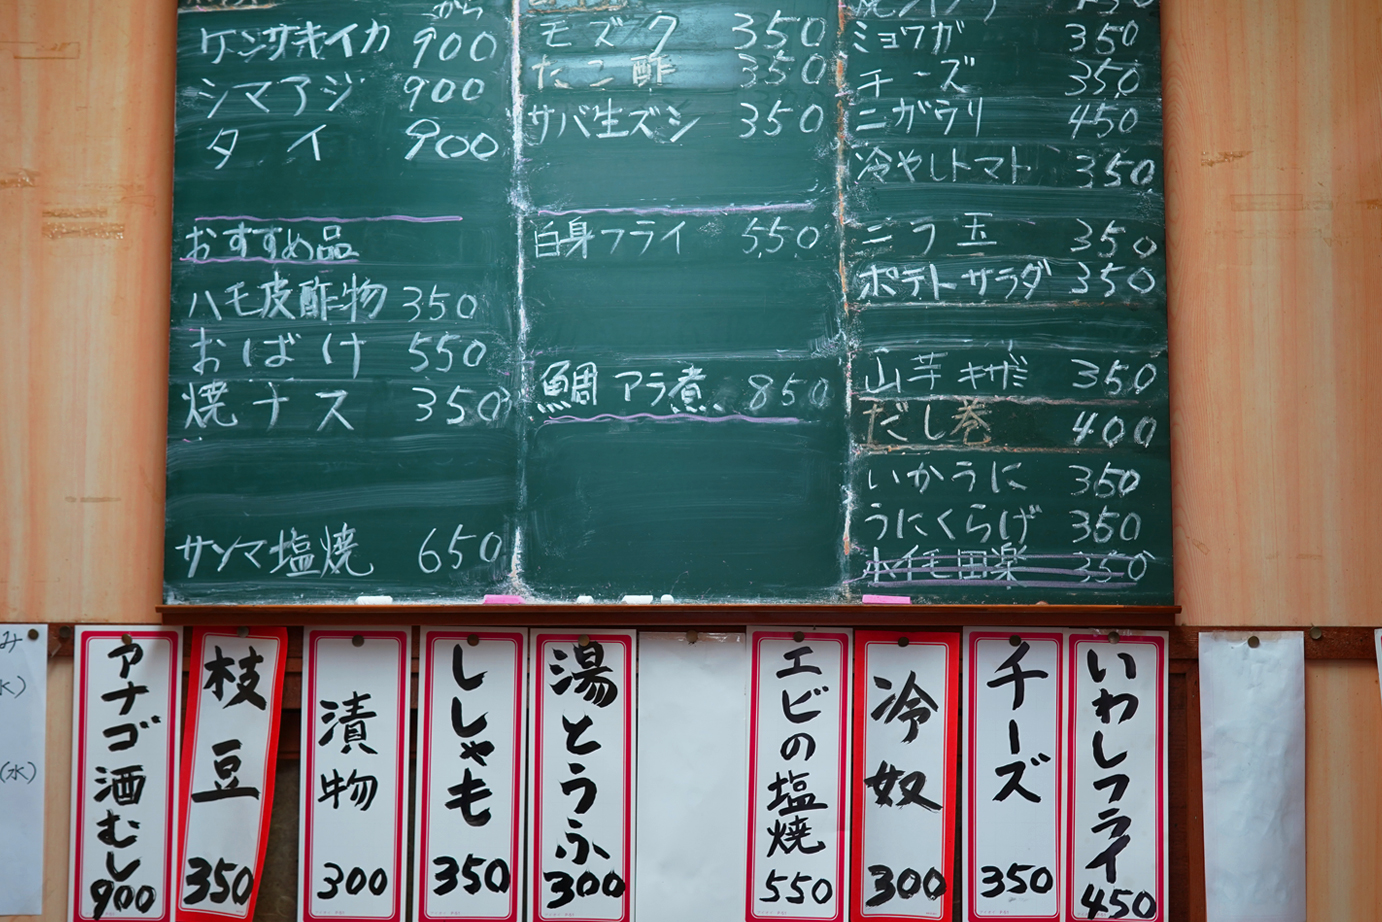 から
ケンサキイカ 900
シマアジ 900
タイ 900
おすすめ品
ハモ皮酢物 350
おばけ 550
焼ナス 350
サンマ塩焼 650
モズク 350
たこ酢 350
サバ生ズシ 350
白身フライ 550
鯛アラ煮 850
ミョウガ 350
チーズ 350
ニガウリ 450
冷やしトマト 350
ニラ玉 350
ポテトサラダ 350
山芋キザミ 350
だし巻 400
いかうに 350
うにくらげ 350
小芋田楽 350
み
(水)
アナゴ酒むし 900
枝豆 350
漬物 300
ししゃも 350
湯とうふ 300
エビの塩焼 550
冷奴 300
チーズ 350
いわしフライ 450